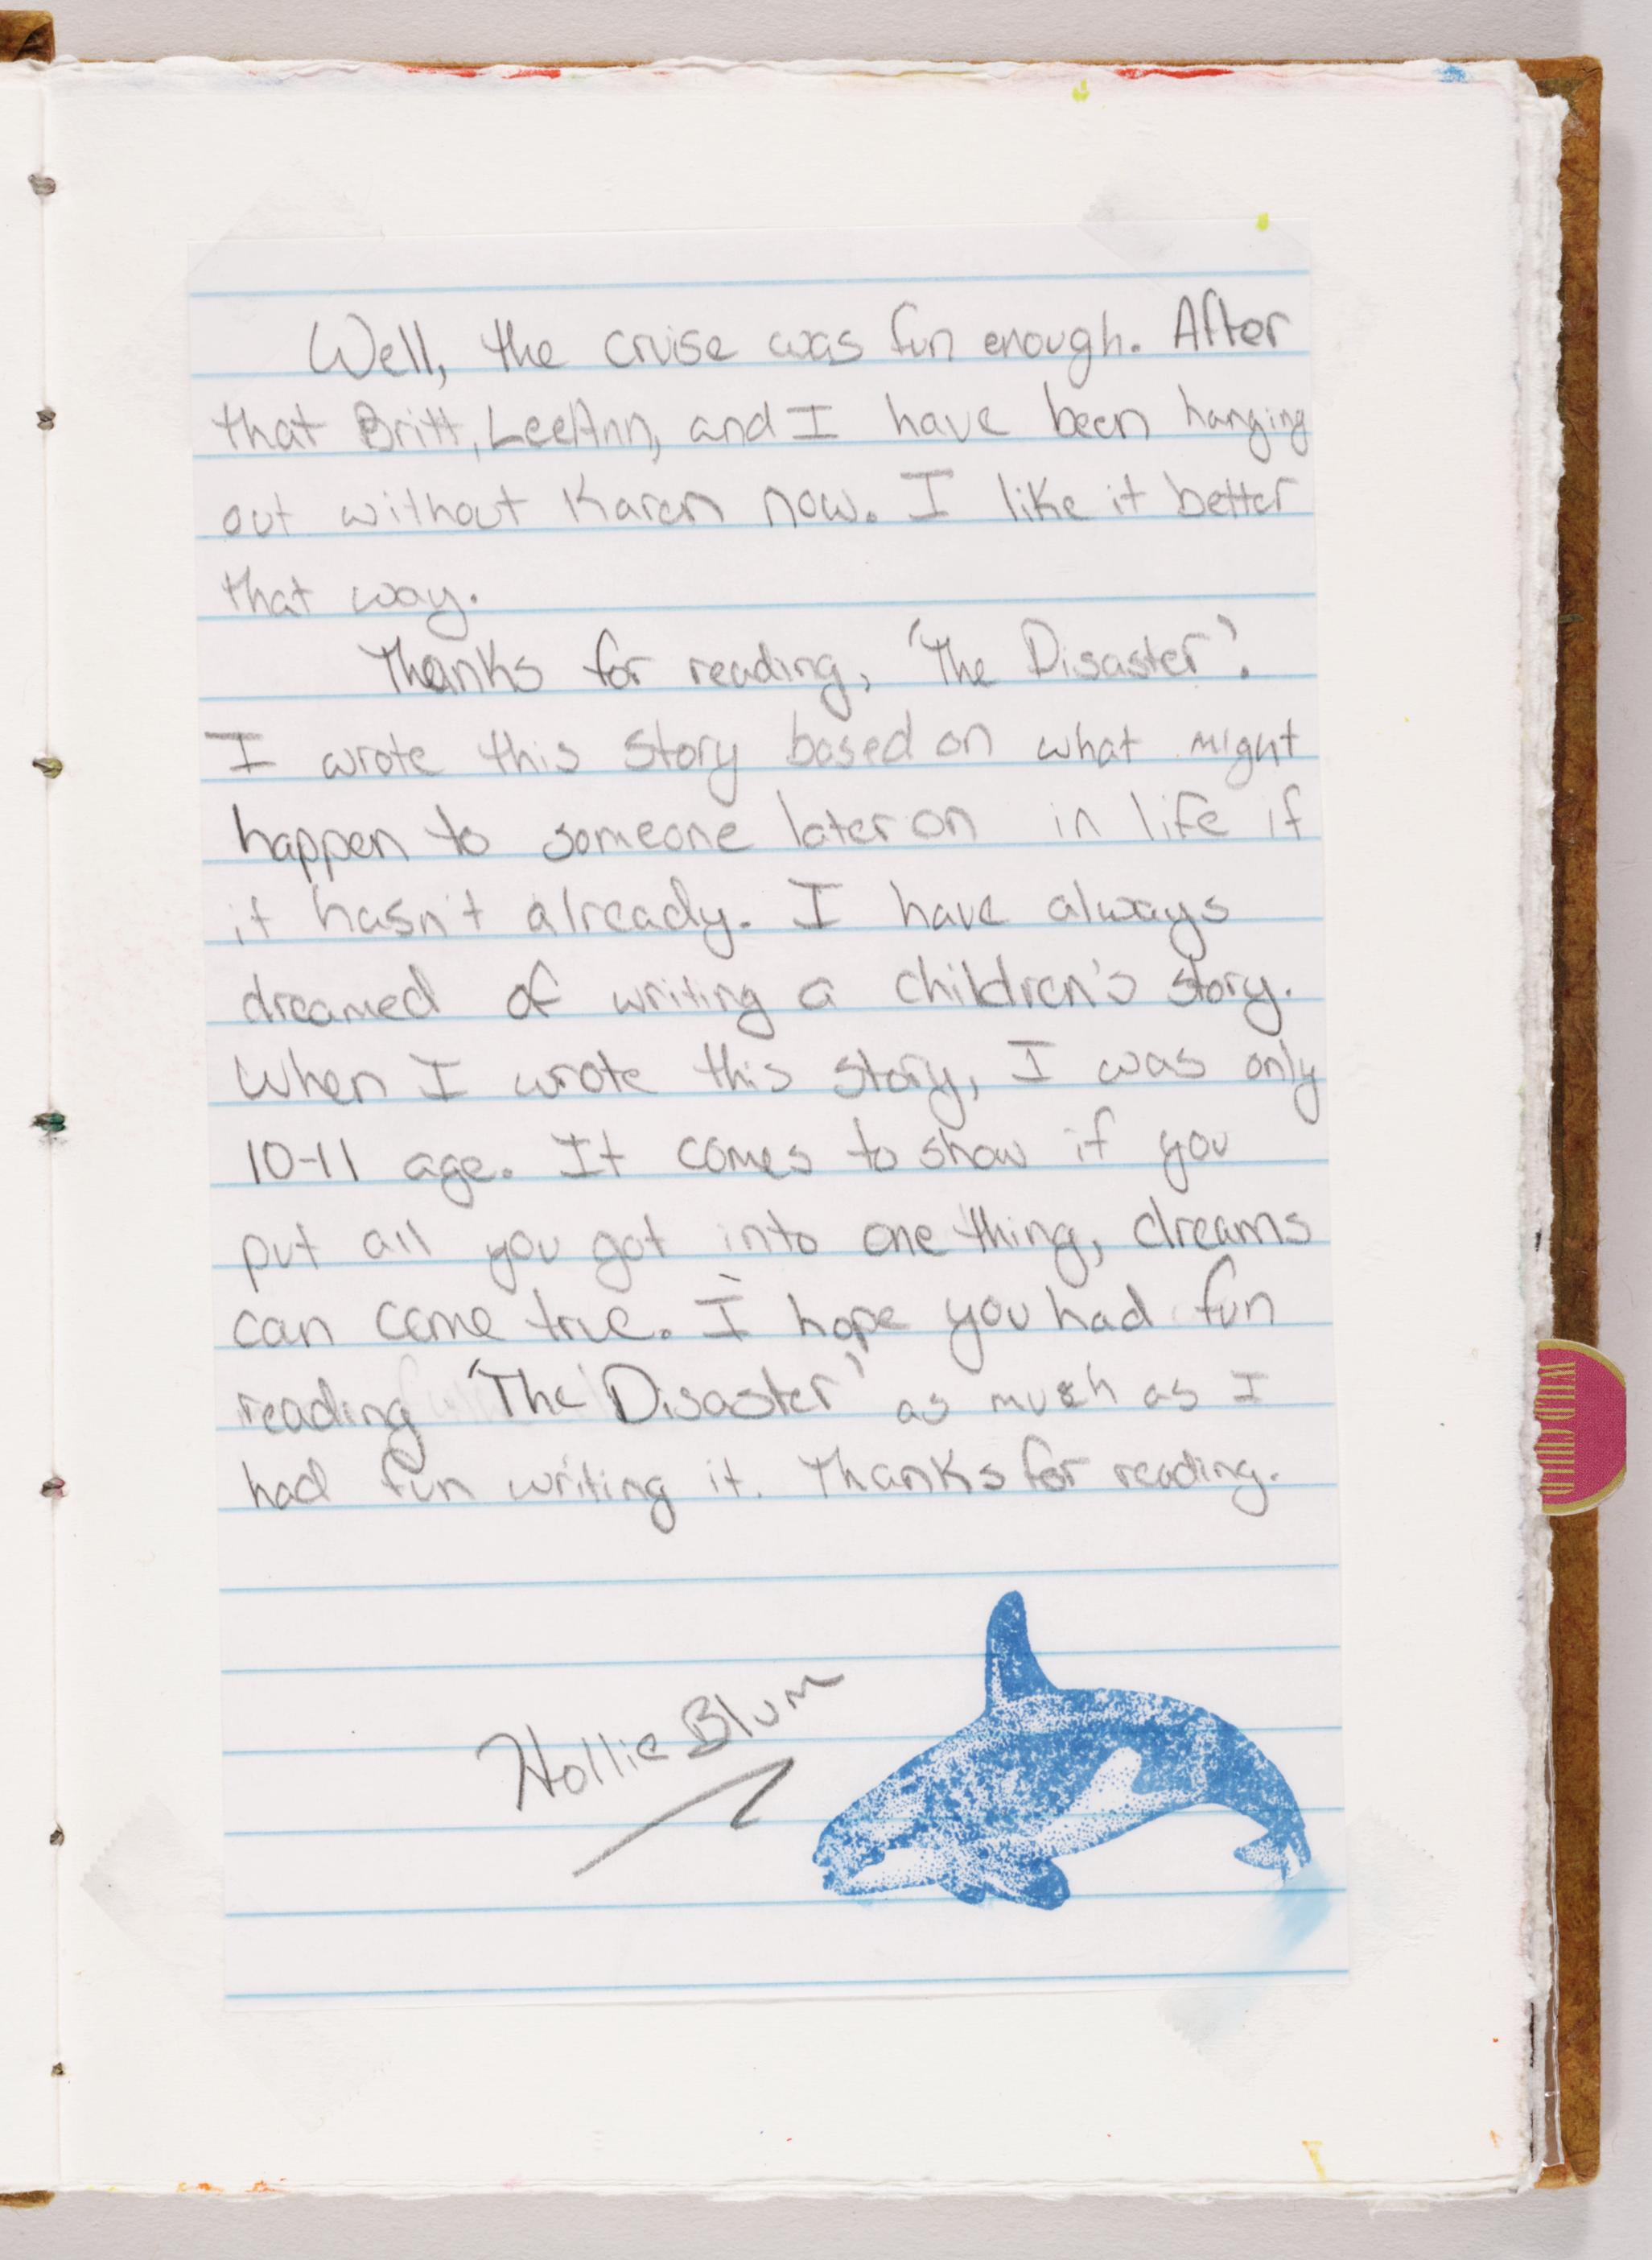 Well, the cruise was fun enough. After
that Britt, LeeAnn, and I have been hanging
out without Karen now. I like it better
that way.
Thanks for reading, 'The Disaster'.
I wrote this story based on what might
happen to someone later on in life if
it hasn't already. I have always
dreamed of writing a children's story.
When I wrote this story, I was only
10-11 age. It comes to show if you
put all you got into one thing, dreams
can come true. I hope you had fun
reading 'The Disaster' as much as I
had fun writing it. Thanks for reading.
Hollie Blum
WILD CHILD